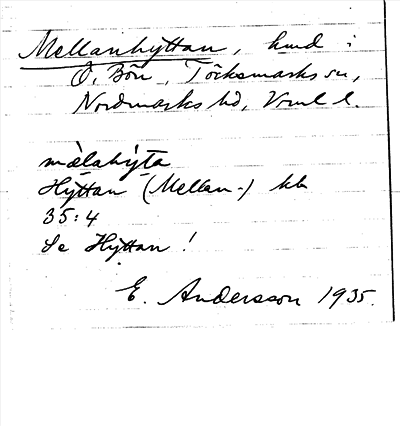 Mellanhyttan, hmd i
Ö. Bön, Töcksmarks sn,
Nordmarks hd, Vrml l.
mèlahy̍ta
Hyttan (Mellan-) kb
35:4
Se Hyttan!
E. Andersson 1935.